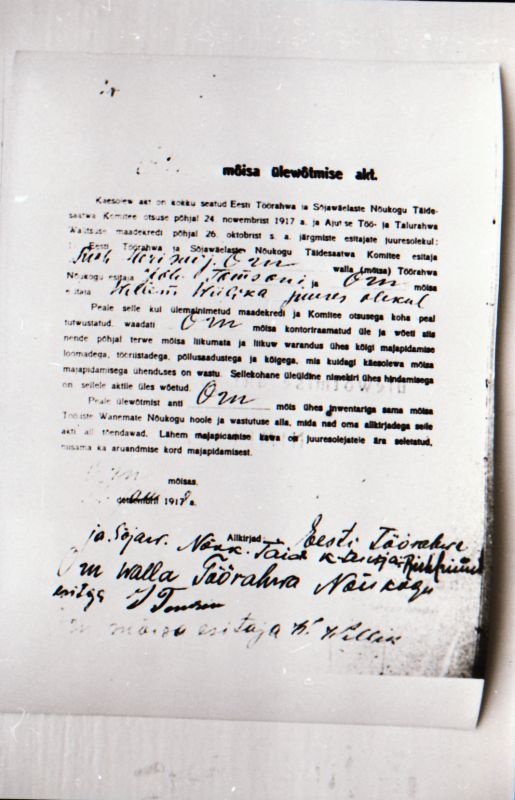 mõisa ülewõtmise akt.
Kaesolew akt on kokku seatud Eesti Töörahwa ja Sõjawäelaste Nõukogu Täide-
saatwa Komitee otsuse põhjal 24. nowembrist 1917 a. ja Ajutise Töö- ja Talurahwa
Walitsuse maadekredi põhjal 26. oktobrist s. a. järgmiste esitajate juuresolekul:
Eesti Töörahwa ja Sõjawäelaste Nõukogu Täidesaatwa Komitee esitaja
Orn walla (mõisa) Töörahwa
Nõukogu esitaja Tomsoni ja Orn mõisa
esitaja Willem juures olekul
Peale selle kui ülemalnimetud maadekredi ja Komitee otsusega koha peal
tutwustatud, waadati Orn mõisa kontoriraamatud üle ja wõeti siis
nende põhjal terwe mõisa liikumata ja liikuw warandus ühes kõigi majapidamise
loomadega, tööriistadega, põllusaadustega ja kõigega, mis kuidagi käesolewa mõisa
majapidamisega ühenduses on wastu. Sellekohane üleüldine nimekiri ühes hindamisega
on sellele aktile üles wõetud.
Peale ülewõtmist anti Orn mõis ühes inwentariga sama mõisa
Tööliste Wanemate Nõukogu hoole ja wastutuse alla, mida nad oma allkirjadega selle
akti all tõendawad. Lähem majapidamise kawa on juuresolejatele ära seletatud,
niisama ka aruandmise kord majapidamisest.
Orn mõisas.
detsembril 1917 a.
Allkirjad Eesti Töörahwa
ja Sõjaw. Nõuk. Täid. k-
Orn walla Töörahwa Nõukogu
esitaja J Tomson
mõisa esitaja W. Willik